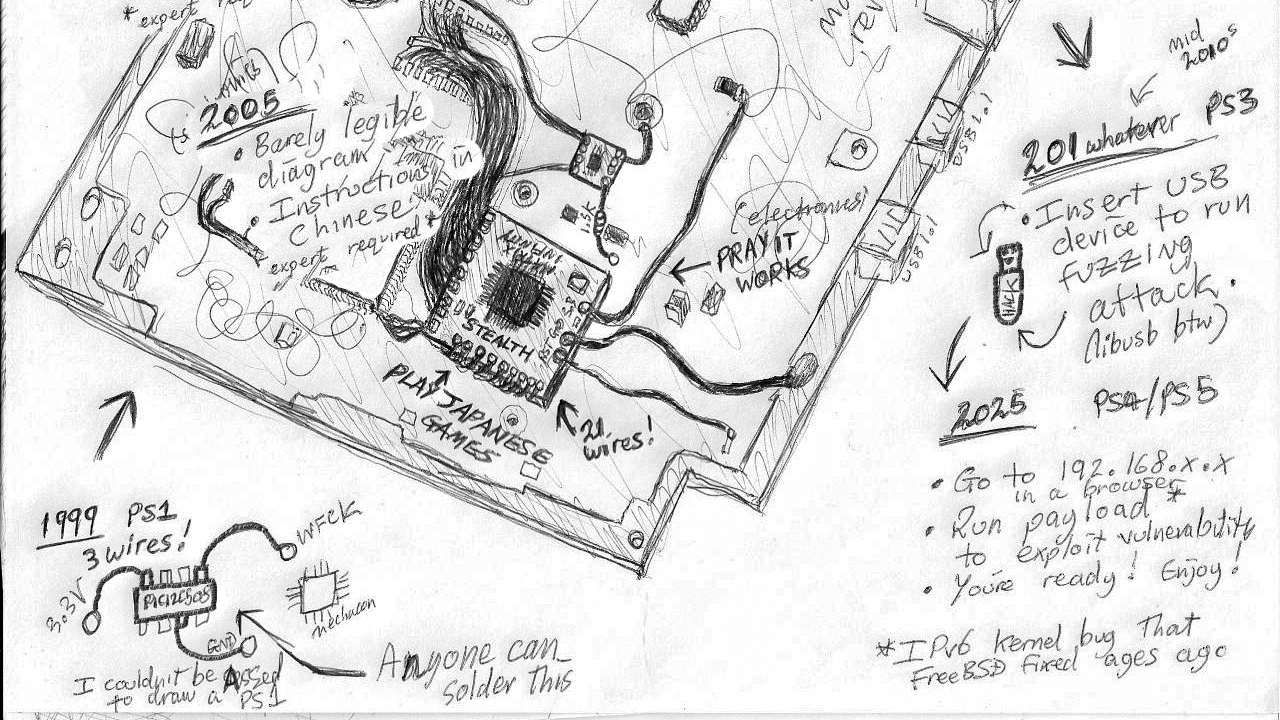 *expert
2005
• Barely legible
diagram
• Instructions in
Chinese
expert required*
STEALTH
PLAY JAPANESE
GAMES
21
wires!
(electronics)
PRAY IT
WORKS
mid
2010s
USB 1.0!
USB 1.0!
201whatever PS3
• Insert USB
device to run
fuzzing
attack.
(libusb btw)
HACK
2025 PS4/PS5
• Go to 192.168.x.x
in a browser
• Run payload*
to exploit vulnerability
• You're ready! Enjoy!
*IPv6 kernel bug that
FreeBSD fixed ages ago
1999 PS1
3 wires!
WFCK
3.3V
PIC12C508
mechacon
GND
Anyone can
solder this
I couldn't be Assed
to draw a PS1